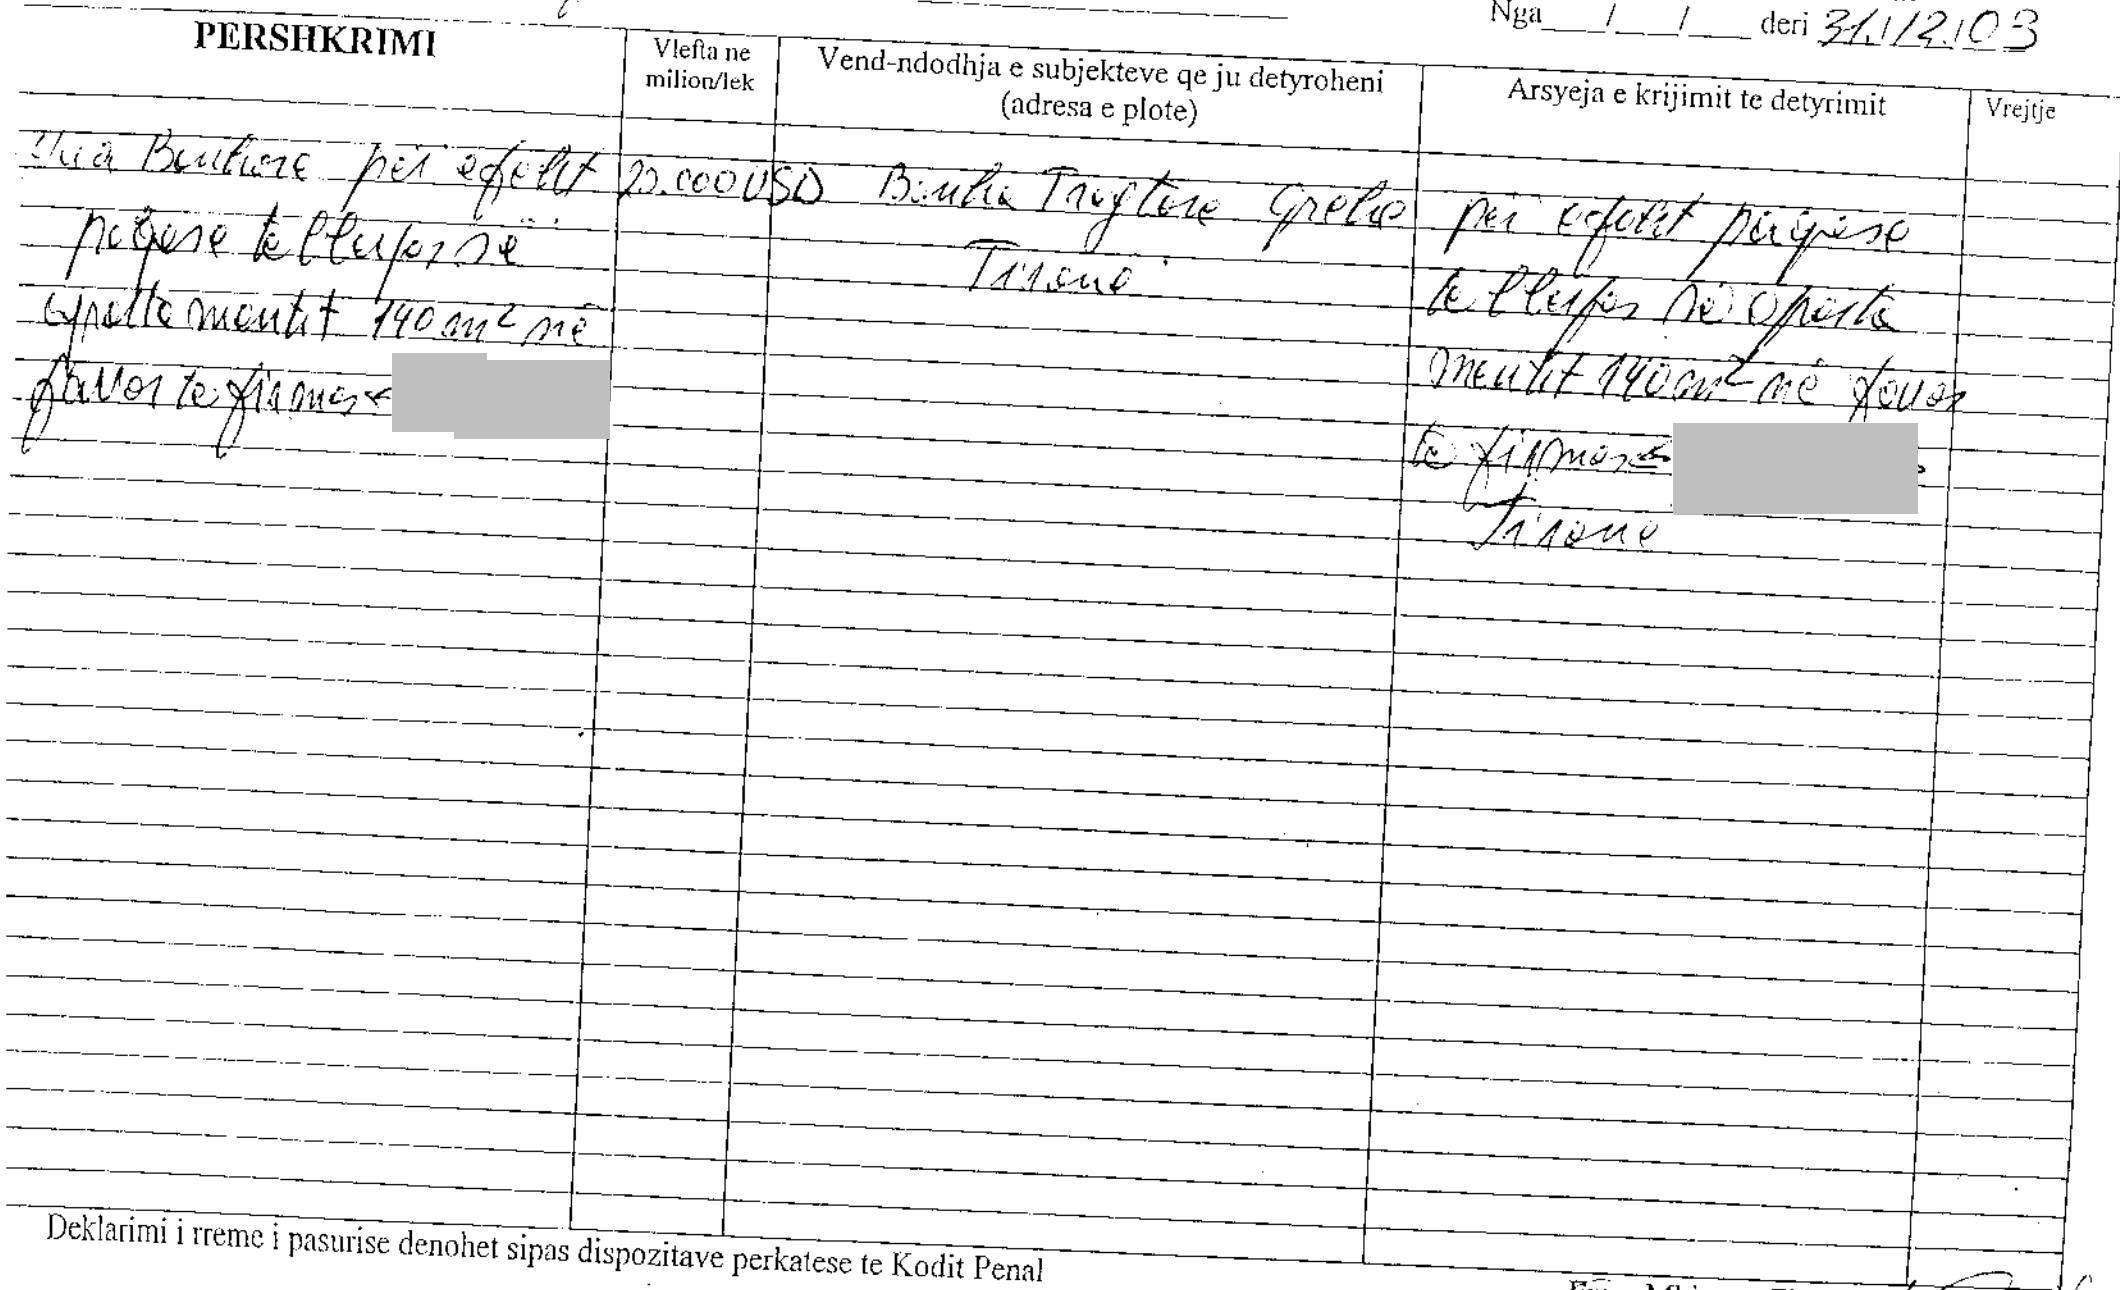 Nga / / deri 31/12/03
PERSHKRIMI
Vlefta ne
milion/lek
Vend-ndodhja e subjekteve qe ju detyroheni
(adresa e plote)
Arsyeja e krijimit te detyrimit
Vrejtje
Bankare për efekt
pagese
140 m² në
favor te firmes
20.000 USD
Banka Tregtare Greke
Tirane
për efekt pagese
mentit 140 m² në favor
te firmes
Tirane
Deklarimi i rreme i pasurise denohet sipas dispozitave perkatese te Kodit Penal